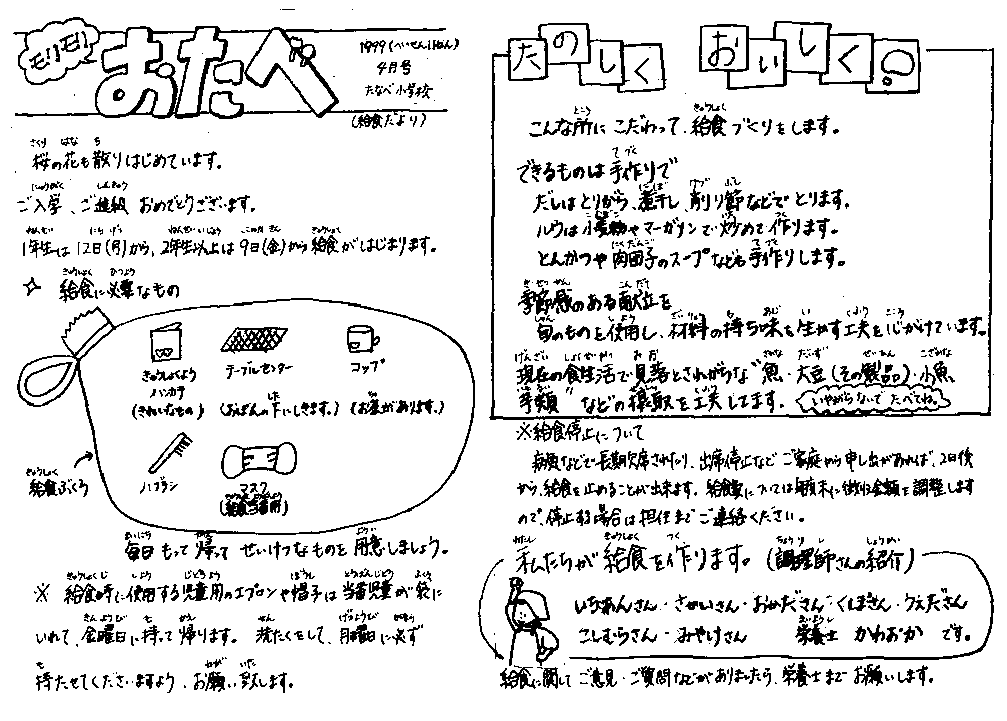 モリモリ
おたべ
1999(へいせい11ねん)
4月号
たなべ小学校
(給食だより)
桜の花も散りはじめています。
ご入学、ご進級 おめでとうございます。
1年生は12日(月)から、2年生以上は9日(金)から給食がはじまります。
☆ 給食に必要なもの
きゅうしょくよう
ハンカチ
(きれいなもの)
テーブルセンター
(おぼんの下にしきます。)
コップ
(お茶があります。)
給食ぶくろ
ハブラシ
マスク
(給食当番用)
毎日もって帰って せいけつなものを用意しましょう。
※ 給食時に使用する児童用のエプロンや帽子は当番児童が袋に
いれて、金曜日に持って帰ります。 洗たくをして、月曜日に必ず
持たせてくださいますよう、お願い致します。
たのしく おいしく
こんな所にこだわって、給食づくりをします。
できるものは手作りで
だしはとりがら、煮干し、削り節などでとります。
ルウは小麦粉やマーガリンで炒めて作ります。
とんかつや肉団子のスープなども手作りします。
季節感のある献立を
旬のものを使用し、材料の持ち味を生かす工夫を心がけています。
現在の食生活で見落とされがちな"魚・大豆(その製品)・小魚
芋類"などの摂取を工夫してます。
いやがらないでたべてね。
※給食停止について
病気などで長期欠席されたり、出席停止など ご家庭から申し出があれば、2日後
から、給食を止めることが出来ます。給食費については毎月末に徴収金額を調整します
ので、停止する場合は担任までご連絡ください。
私たちが給食を作ります。(調理師さんの紹介)
いちあんさん・さかいさん・おかださん・くぼさん・うえださん
こしむらさん・みやけさん 栄養士 かわおか です。
給食に関して ご意見・ご質問などがありましたら、栄養士までお願いします。